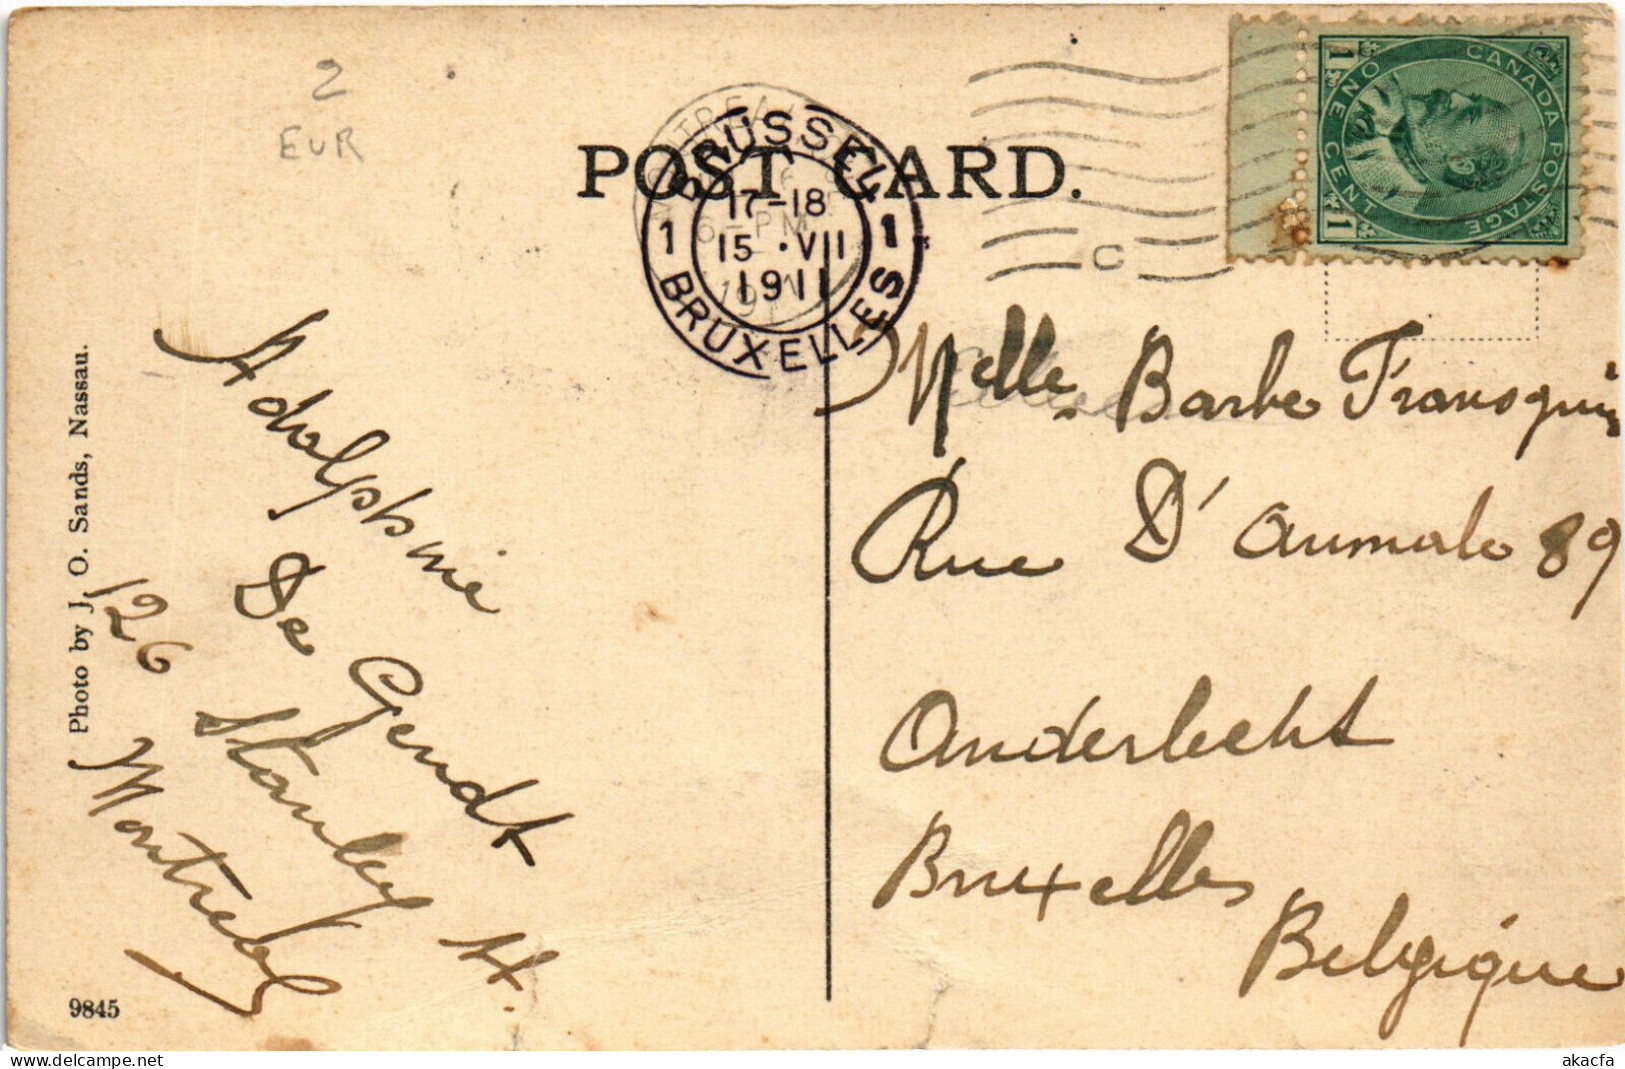 2
EUR
POST CARD.
CANADA POSTAGE
ONE CENT
1 1
MONTREAL
6-PM
BRUSSEL
17-18
1 15 · VII 1
1911
BRUXELLES
C
Photo by J. O. Sands, Nassau.
9845
Adolphine
De Gendt
126 Stanley St.
Montreal
Melle Barbe Transquin
Rue D'aumale 89
Anderlecht
Bruxelles
Belgique
akacfa